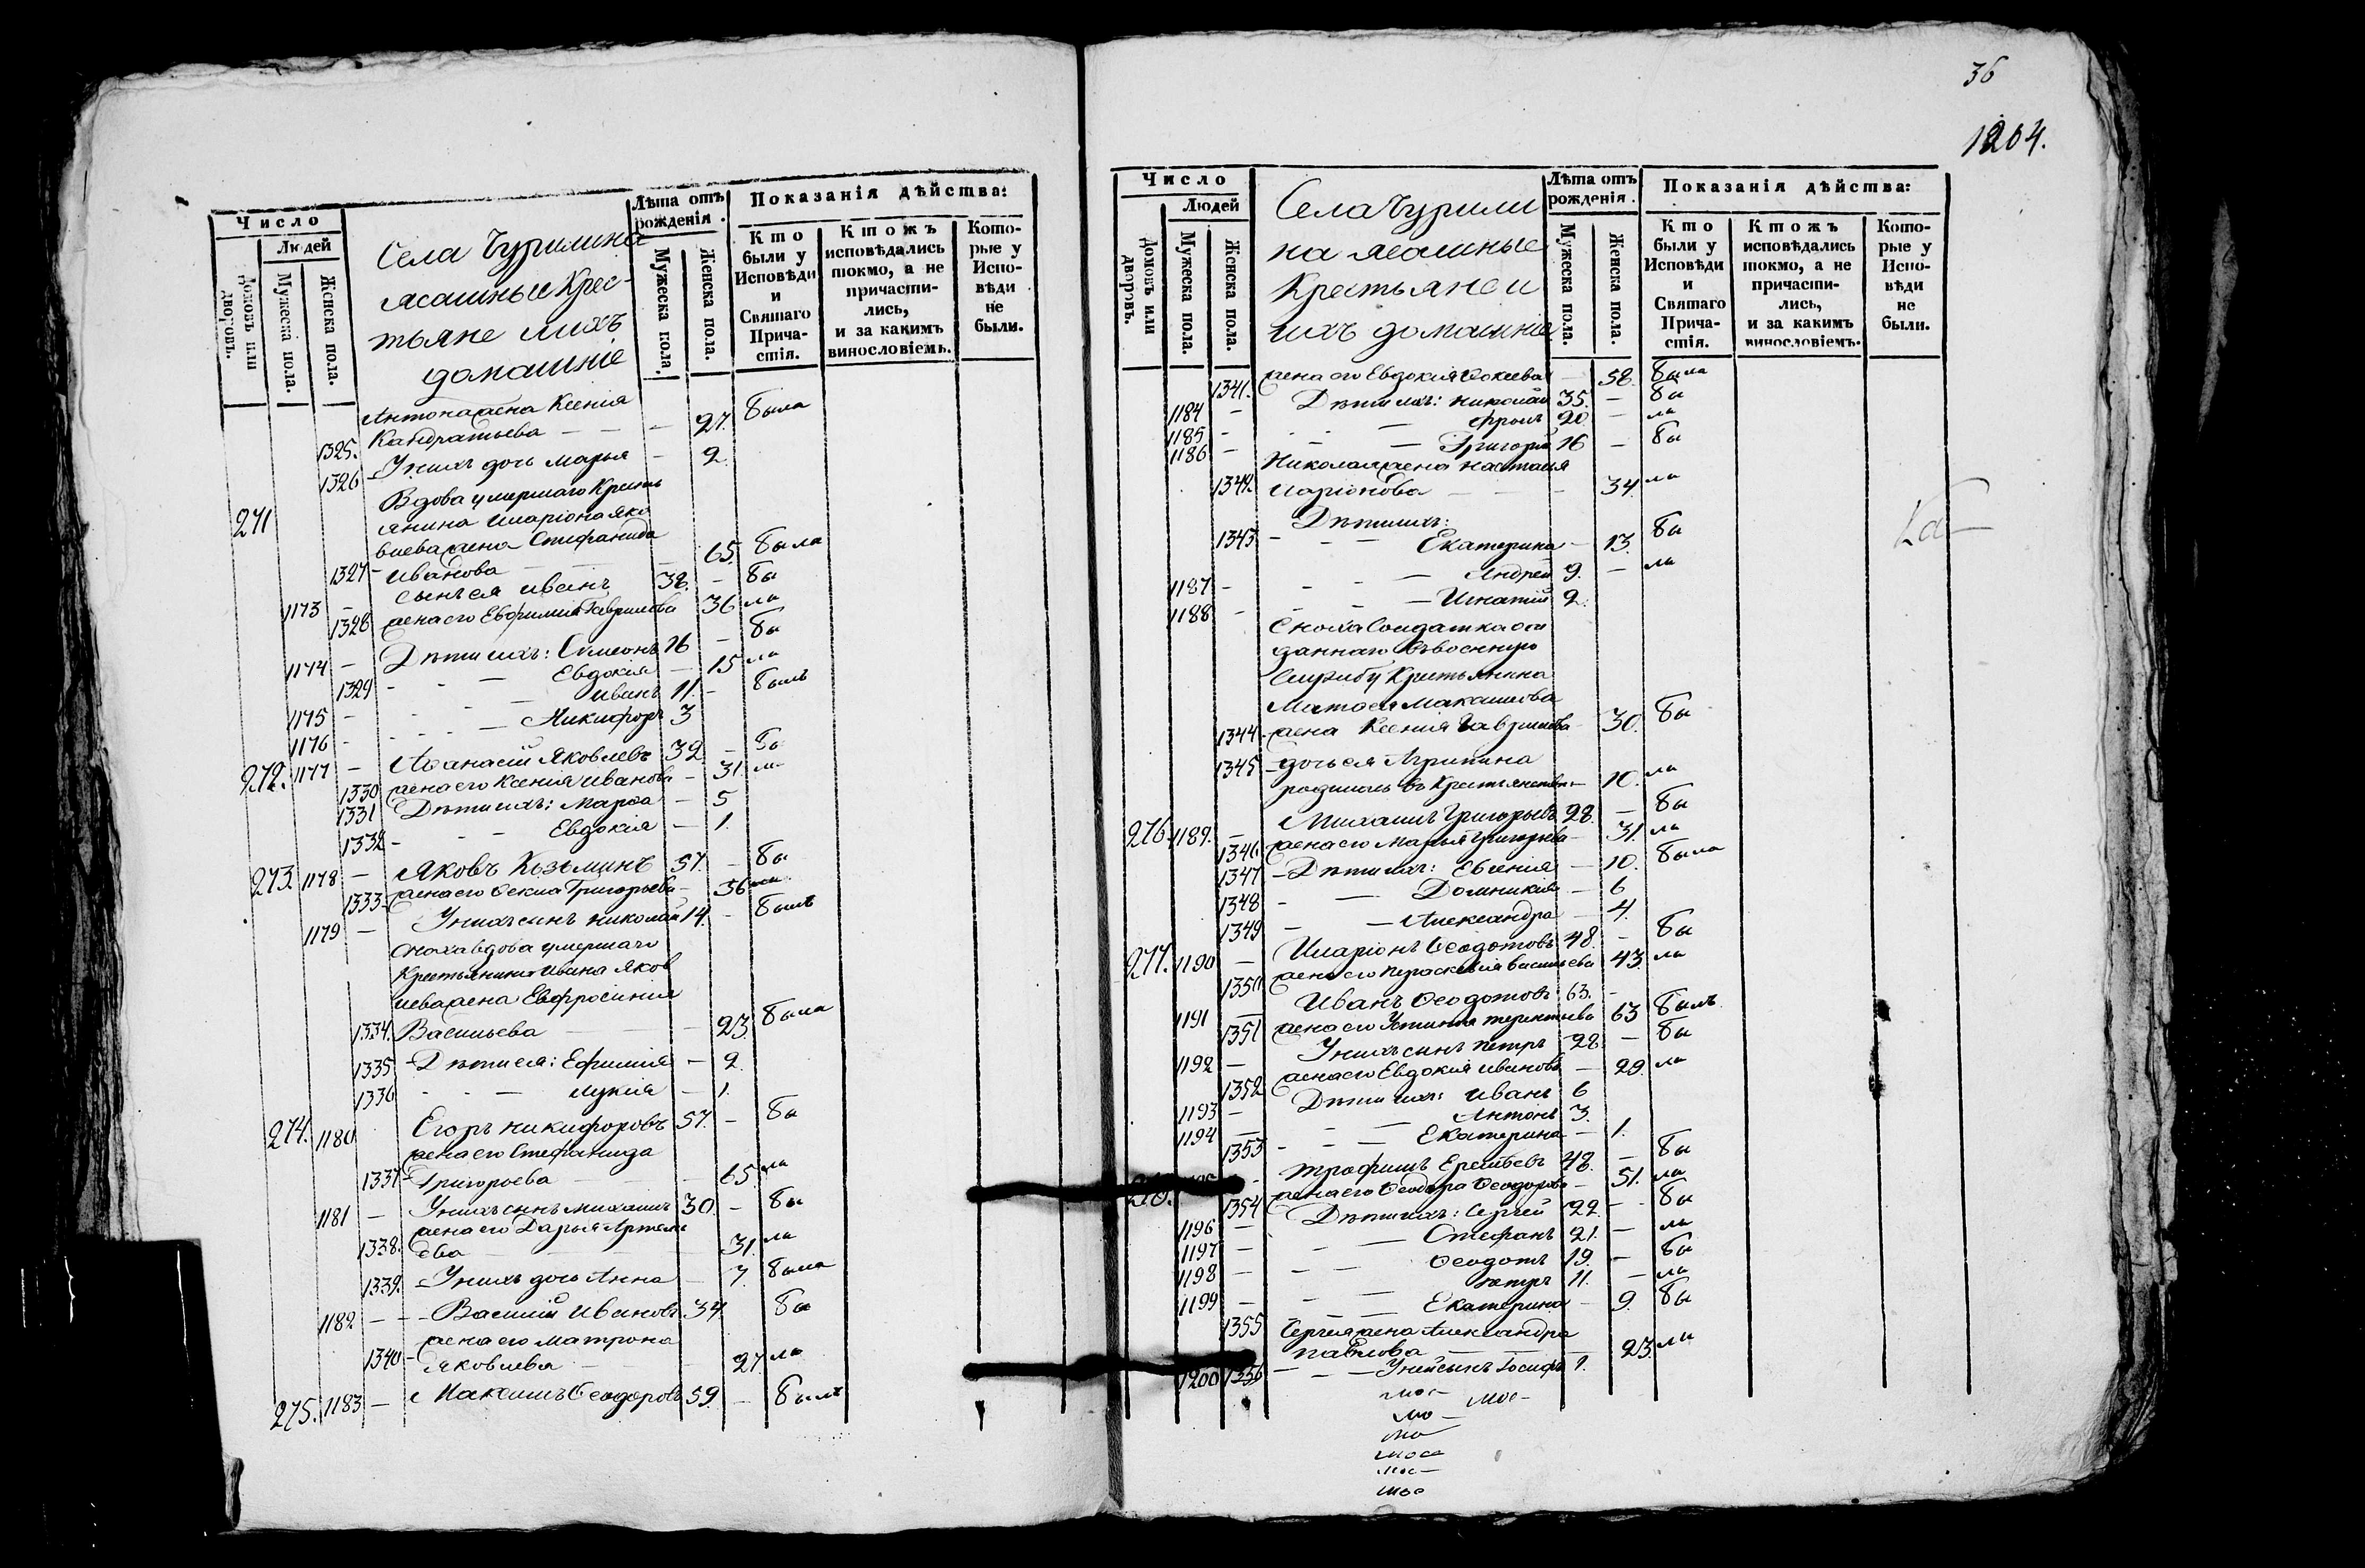 Число
Людей
Домовъ или дворовъ.
Мужеска пола.
Женска пола.
Села Чурилина
ясашные Крес-
тьяне и ихъ
домашніе
Лѣта отъ рожденія.
Мужеска пола.
Женска пола.
Показанія дѣйства:
Кто были у Исповѣди и Святаго Причастія.
Ктожъ исповѣдались токмо, а не причастились, и за какимъ винословіемъ.
Которые у Исповѣди не были.
Антона жена Ксенія
1325. Кандратьева — — — 27. была
1326 - У нихъ дочь Марья - 2.
271 Вдова умершаго Кресть
янина Иларіона Яко
влева жена Стефанида
1327 - Иванова — — 65. была
1173 — сынъ ея Иванъ 38. - бы
1328 жена его Евфимія Гаврилова 36 ла
1174 — Дѣти ихъ: Симеонъ 16 - бы
1329 - - — Евдокія — 15 ла
1175 - - — Иванъ 11. - былъ
1176 - - — Никифоръ 3
272. 1177 — Аѳанасій Яковлевъ 32. - бы
1330 жена его Ксенія Иванова - 31. ла
1331 Дѣти ихъ: Марѳа - 5
1332 - - - Евдокія — 1.
273. 1178 — Яковъ Козьминъ 57. - бы
1333 - жена его Ѳекла Григорьева - 56 ла
1179 — У нихъ сынъ Николай 14. - былъ
сноха вдова умершаго
Крестьянина Ивана Яков
лева жена Евфросинія
1334. Васильева — — 23. была
1335 - Дѣти ея: Ефимія - 2.
1336 - - — Лукія — 1.
274. 1180 Егоръ Никифоровъ 57. - бы
жена его Стефанида
1337 - Григорьева — 65. ла
1181 — У нихъ сынъ Михаилъ 30. - бы
жена его Дарья Артемь
1338. ева — 31. ла
1339. - У нихъ дочь Анна — 7. была
1182 — - Василій Ивановъ 34. бы
жена его Матрона
1340 - Яковлева — 27. ла
275. 1183 — Максимъ Ѳеодоровъ 59. - былъ
36
1204.
Число
Людей
Домовъ или дворовъ.
Мужеска пола.
Женска пола.
Села Чурили
на ясашные
Крестьяне и
ихъ домашніе
Лѣта отъ рожденія.
Мужеска пола.
Женска пола.
Показанія дѣйства:
Кто были у Исповѣди и Святаго Причастія.
Ктожъ исповѣдались токмо, а не причастились, и за какимъ винословіемъ.
Которые у Исповѣди не были.
1341. жена его Евдокія — 58. была
1184 — Дѣти ихъ: Николай 35. - бы
1185 - - — Фролъ 20. — ла
1186 — — Григорій 16 - бы
Николая жена Настасья
1342. Иларіонова — — - 34. ла
Дѣти ихъ:
1343 - - — Екатерина - 13. бы
1187 - - — Андрей 9. — ла
1188 - - — Игнатій 2.
Сноха Солдатка от
даннаго въ военную
Службу Крестьянина
Матѳея Максимова
1344. жена Ксенія Гаврилова 30. бы
1345 - дочь ея Агрипина
родилась въ Крестьянствѣ - 10. ла
276. 1189. — Михаилъ Григорьевъ 28. - бы
1346 жена его Марья Григорьева - 31. ла
1347 - Дѣти ихъ: Евгенія — 10. была
1348 - — Домникія - 6
1349 - — Александра — 4.
277. 1190 — Иларіонъ Ѳеодотовъ 48. - бы
1350 жена его Параскевія Васильева 43. ла
1191 — Иванъ Ѳеодотовъ 63. -
1351 жена его Устинія Терентьева 63 былъ
1192 — У нихъ сынъ Петръ 28. - бы
1352 жена его Евдокія Иванова — 29. ла
1193 — Дѣти ихъ: Иванъ 6
1194 — - — Антонъ 3.
1353 - - — Екатерина — 1.
278. - Трофимъ 48. - бы
1354 жена его Ѳеодора Ѳеодорова - 51. ла
1196 — Дѣти ихъ: Сергій 22. - бы
1197 — - — Стефанъ 21. — ла
1198 — - — Ѳеодотъ 19. - бы
1199 — - — Петръ 11. - ла
1355 - — Екатерина - 9. бы
Сергія жена Александра
1356 Павлова — — 23. ла
1200 - — У ней сынъ Іосифъ 1.